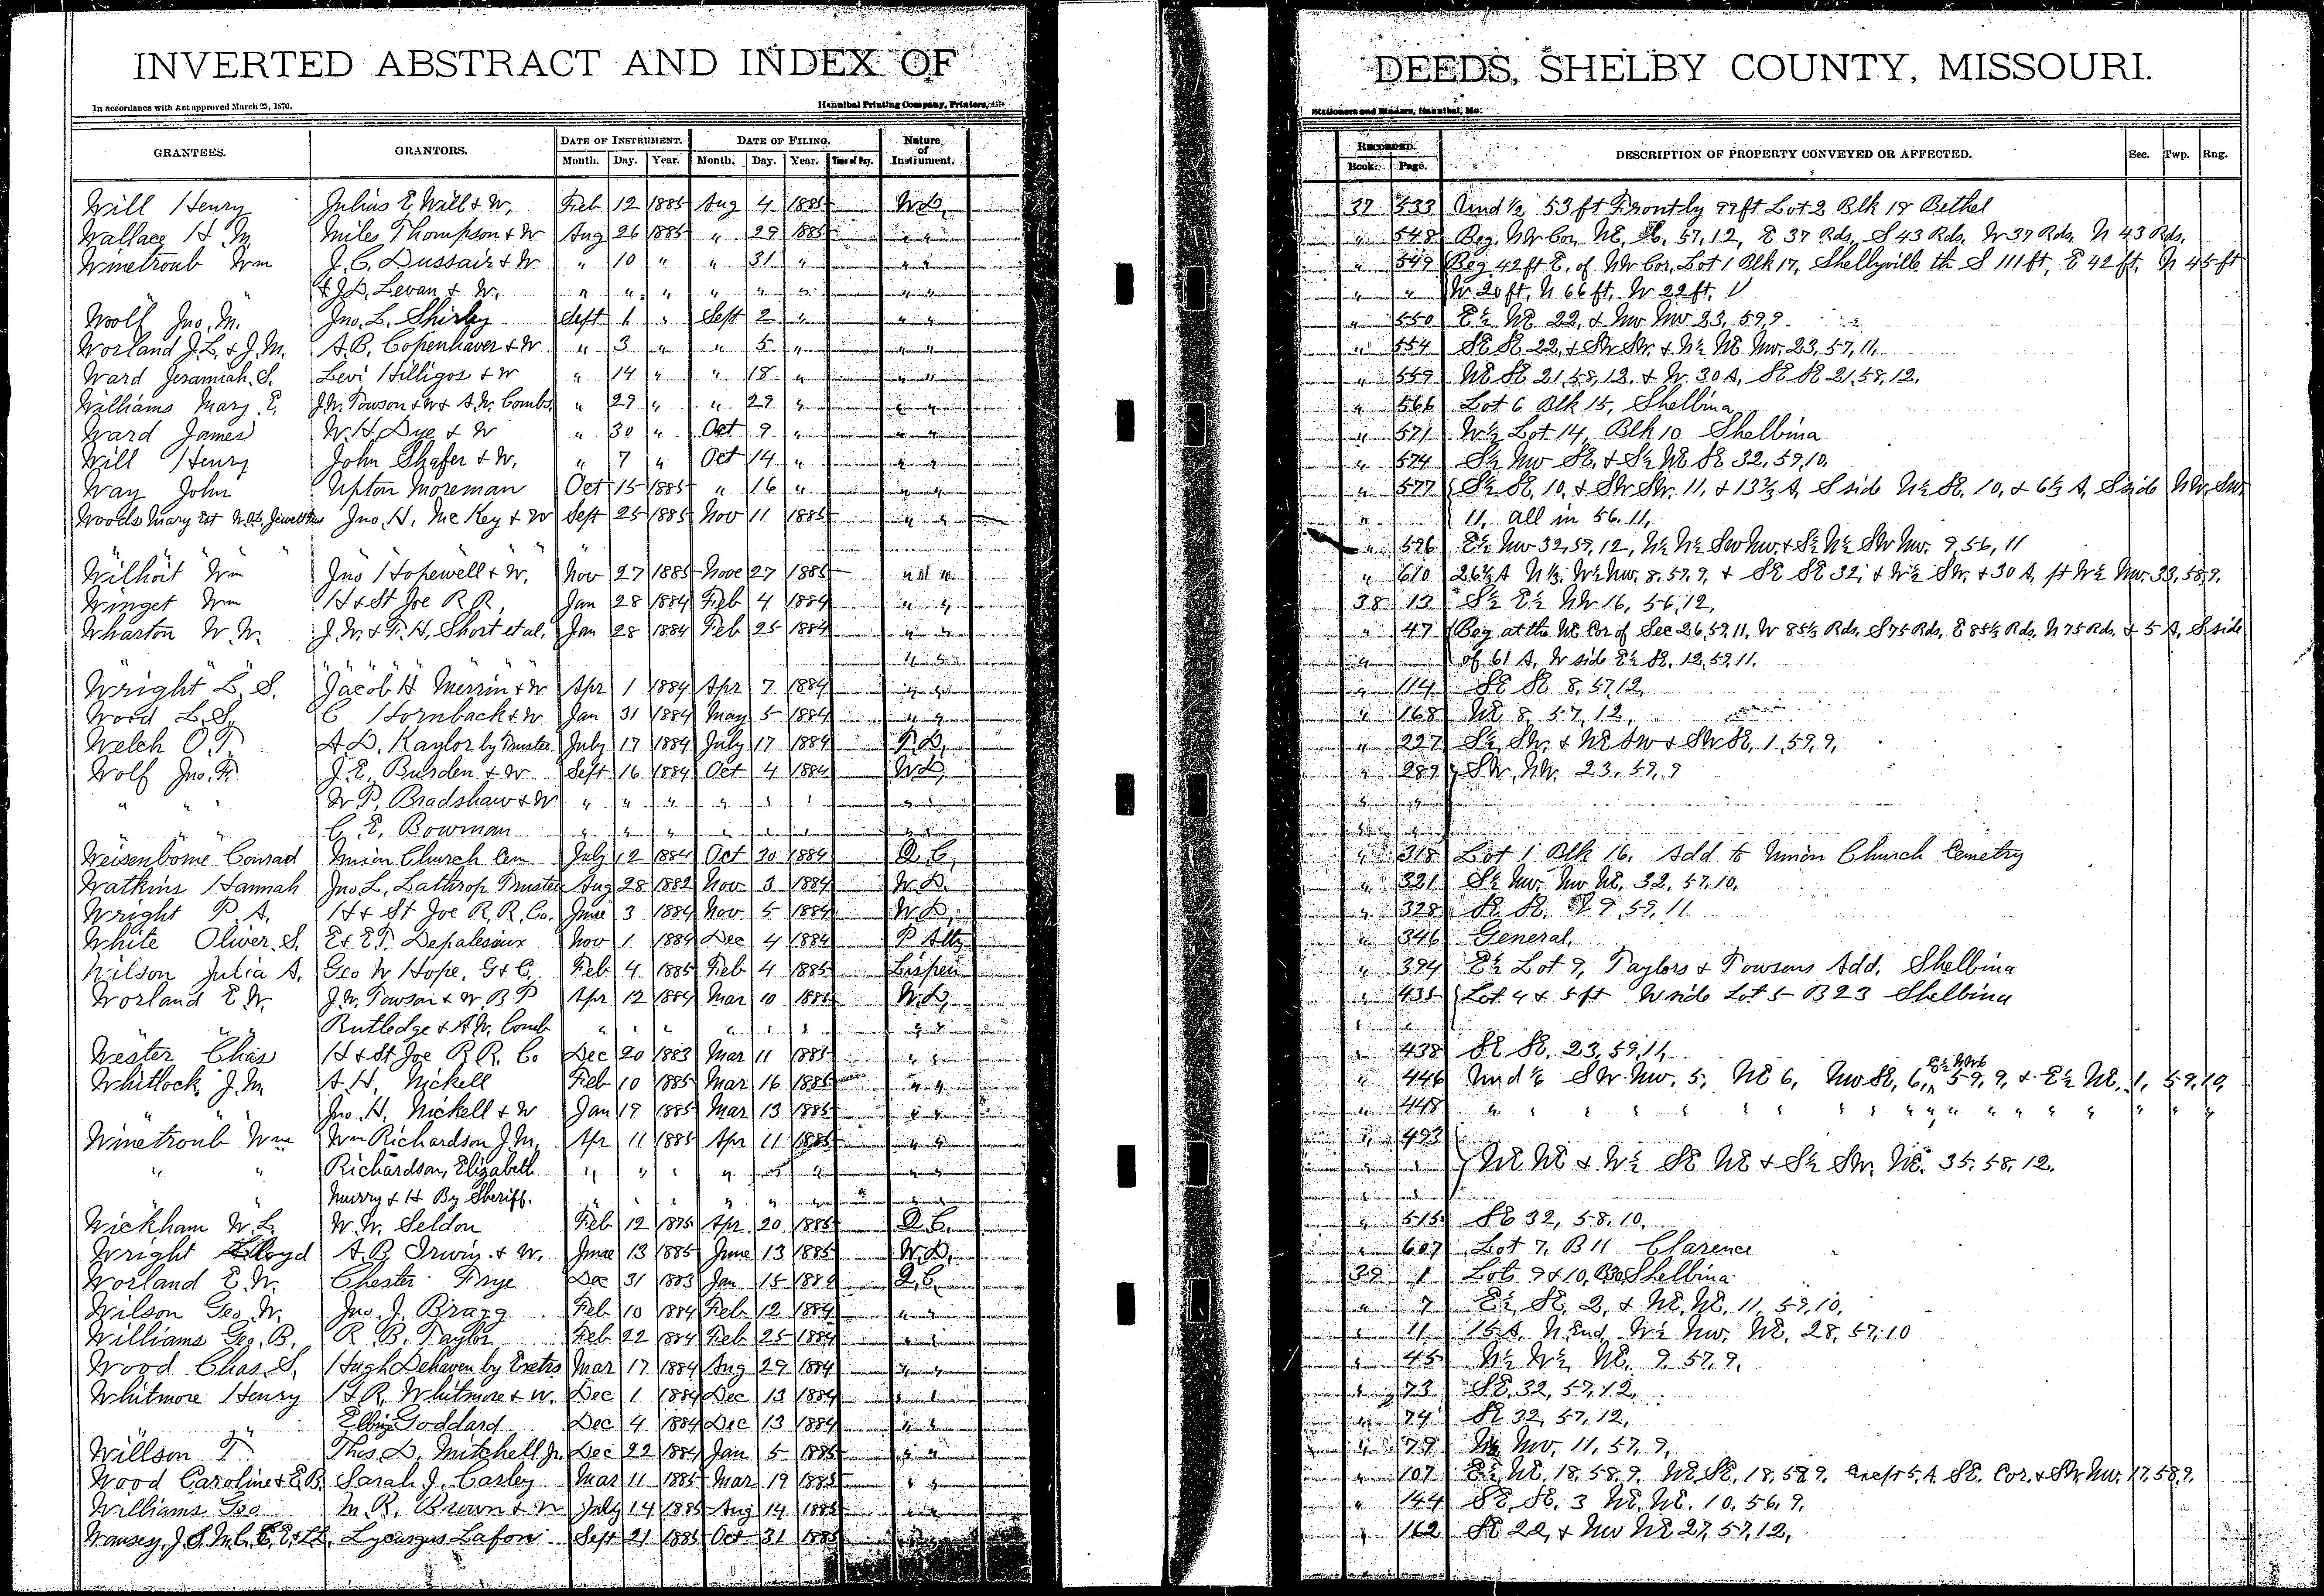 INVERTED ABSTRACT AND INDEX OF DEEDS, SHELBY COUNTY, MISSOURI.
In accordance with Act approved March 25, 1870. Hannibal Printing Company, Printers, Stationers and Binders, Hannibal, Mo.
GRANTEES. GRANTORS. DATE OF INSTRUMENT. Month. Day. Year. DATE OF FILING. Month. Day. Year. Time of Day. Nature of Instrument. RECORDED. Book. Page. DESCRIPTION OF PROPERTY CONVEYED OR AFFECTED. Sec. Twp. Rng.
Will Henry Julius E Will & W. Feb 12 1885 Aug 4 1885 W.D. 37 533 Und ½ 53 ft Front by 99 ft Lot 2 Blk 19 Bethel
Wallace H. M. Miles Thompson & W Aug 26 1885 " 29 1885 " " " 548 Beg. NW Cor. NE, 57, 12, E 37 Rds, S 43 Rds. W 37 Rds. N 43 Rds.
Winetroub Wm J. C. Dussair & W " 10 " " 31 " " " " 549 Beg 42 ft E. of NW Cor. Lot 1 Blk 17, Shelbyville th S 111 ft, E 42 ft, N 45 ft
& J.D. Levan & W. " " " " " " " " " " W 20 ft, N 66 ft. W 22 ft.
Woolf Jno. M. Jno. L. Shirley Sept 1 " Sept 2 " " " " 550 E½ NE 22, & NW NW 23, 59, 9.
Worland J.L. & J.M. A.B. Copenhaver & W " 3 " " 5 " " " " 554 SE SE 22, & SW SW. & N½ NE NW. 23, 57, 11.
Ward Jeramiah. S. Levi Hilligos & W " 14 " " 18 " " " " 559 NE SE 21, 58, 12. & W. 30 A. SE SE 21, 58, 12.
Williams Mary E. J.W. Towson & W & A.W. Combs " 29 " " 29 " " " " 566 Lot 6 Blk 15, Shelbina
Ward James W. H. Dye & W " 30 " Oct 9 " " " " 571 W½ Lot 14, Blk 10 Shelbina
Will Henry John Shafer & W. " 7 " Oct 14 " " " " 574 S½ NW SE. & S½ NE SE 32, 59, 10.
Way John Upton Moreman Oct 15 1885 " 16 " " " " 577 S½ SE. 10, & SW SW. 11, & 13⅔ A. S side N½ SE. 10, & 6⅔ A, S side NW. SW.
Woods Mary Est Jno. H. McKey & W Sept 25 1885 Nov 11 1885 " " " 11, all in 56, 11,
" " " " 596 E½ NW 32, 59, 12, N½ N½ SW NW. & S½ N½ SW NW. 9, 56, 11
Wilhoit Wm Jno Hopewell & W. Nov 27 1885 Nove 27 1885 " " " 610 26⅔ A N⅓ W½ NW. 8, 57, 9, & SE SE 32, & W½ SW. & 30 A, pt W½ NW. 33, 58, 9.
Winget Wm H & St Joe R R, Jan 28 1884 Feb 4 1884 " " 38 13 S½ E½ NW 16, 56, 12,
Wharton W. W. J. W. & F. H. Short et al. Jan 28 1884 Feb 25 1884 " " " 47 Beg at the NE Cor of Sec 26, 59, 11, W 85½ Rds. S 75 Rds. E 85½ Rds. N 75 Rds. & 5 A. S side
" " " " " " " " of 61 A. W side E½ SE. 12, 59, 11.
Wright L. S. Jacob H Merrin & W Apr 1 1884 Apr 7 1884 " " " 114 SE SE 8, 57, 12,
Word L. S. C Hornback & W Jan 31 1884 May 5 1884 " " " 168 NE 8, 57, 12,
Welch O. T. A. D. Kaylor by Trustee July 17 1884 July 17 1884 T.D. " 227 S½ SW. & NE SW & SW SE. 1, 59, 9,
Wolf Jno. F. J. E. Burden & W Sept 16 1884 Oct 4 1884 W.D. " 289 SW, NW. 23, 59, 9
" " W. P. Bradshaw & W " " " " " " " " " "
" " C. E. Bowman " " " " " " " " " "
Weisenborne Conrad Union Church Cem July 12 1884 Oct 30 1884 Q.C. " 318 Lot 1 Blk 16. Add to Union Church Cemetry
Watkins Hannah Jno. L. Lathrop Trustee Aug 28 1882 Nov 3 1884 W.D. " 321 S½ NW. NW NE. 32, 57, 10,
Wright P. A. H & St Joe R. R. Co. June 3 1884 Nov 5 1884 W.D. " 328 SE SE. 9, 59, 11
White Oliver. S. E & E T. Depalesiaux Nov 1 1884 Dec 4 1884 P Atty " 346 General.
Wilson Julia A. Geo W Hope, G & C. Feb 4 1885 Feb 4 1885 Lispen " 394 E½ Lot 9, Taylors & Towsons Add. Shelbina
Worland E. W. J. W. Towson & W B P Apr 12 1884 Mar 10 1885 W.D. " 435 Lot 4 & 5 ft W side Lot 5 B 23 Shelbina
" " Rutledge & A. W. Comb " " " " " " " " " "
Wester Chas H & St Joe R. R. Co Dec 20 1883 Mar 11 1885 " " " 438 SE SE. 23, 59, 11,
Whitlock J. M. A. H. Nickell Feb 10 1885 Mar 16 1885 " " " 446 Und ⅙ SW NW. 5, NE 6, NW SE, 6, E½ NW 6 59, 9, & E½ NE. 1, 59, 10,
Jno. H. Nickell & W Jan 19 1885 Mar 13 1885 " " " 448 " " " " " " " " " " " " " "
Winetroub Wm Wm Richardson J.M. Apr 11 1885 Apr 11 1885 " " " 493
" " Richardson, Elizabeth " " " " " " " " " " NE NE & W½ SE NE & S½ SW. NE. 35, 58, 12.
" Murry & H By Sheriff. " " " " " " " " " "
Wickham W. L. W. W. Seldon Feb 12 1875 Apr 20 1885 Q.C. " 515 SE 32, 58, 10,
Wright Lloyd A. B. Irwin & W. June 13 1885 June 13 1885 W.D. " 607 Lot 7, B 11 Clarence
Worland E. W. Chester Frye Dec 31 1883 Jan 15 1884 Q.C. 39 1 Lots 9 & 10, Shelbina
Wilson Geo. W. Jno. J. Bragg Feb 10 1884 Feb 12 1884 " " " 7 E½ SE. 2, & NE. NE. 11, 59, 10.
Williams Geo. B. R. B. Taylor Feb 22 1884 Feb 25 1884 " " " 11 15 A. N End W½ NW. NE. 28, 57, 10
Wood Chas. S. Hugh Dehaven by Exetrs Mar 17 1884 Aug 29 1884 " " " 45 N½ W½ NE. 9, 57, 9.
Whitmore Henry H. R. Whitmore & W. Dec 1 1884 Dec 13 1884 " " " 73 SE. 32, 57, 12,
" " Goddard Dec 4 1884 Dec 13 1884 " " " 74 SE 32, 57, 12,
Willson T. Thos D. Mitchell Jr. Dec 22 1884 Jan 5 1885 " " " 79 NW. 11, 57, 9,
Wood Caroline & E.B. Sarah J. Carley Mar 11 1885 Mar 19 1885 " " " 107 E½ NE. 18, 58, 9. NE SE. 18, 58, 9. except 5. A SE. Cor. & SW NW. 17, 58, 9.
Williams Geo M. R. Brown & W July 14 1885 Aug 14 1885 " 144 SE, SE. 3 NE. NE. 10, 56, 9,
Lycurgus Lafon Sept 21 1885 Oct 31 1885 " 162 SE 22, & NW NE 27, 57, 12,